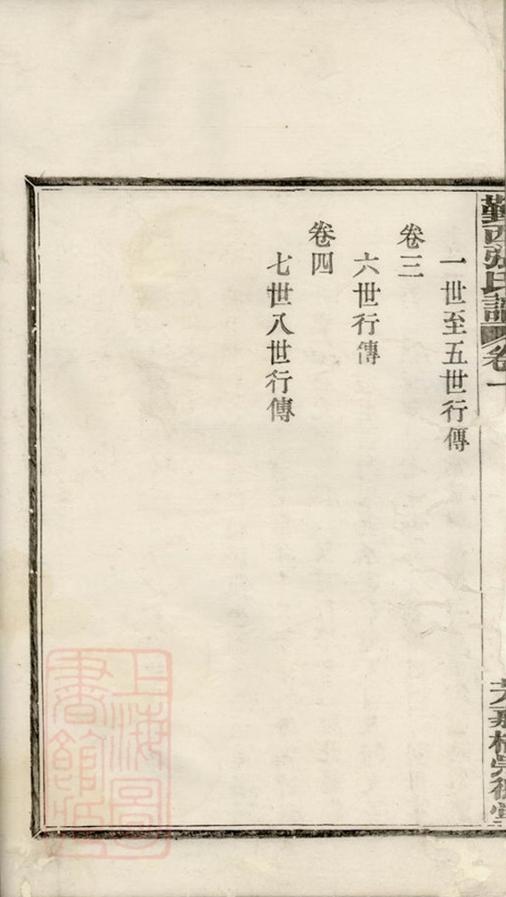 勤西張氏譜 卷一
一世至五世行傳
卷三
六世行傳
卷四
七世八世行傳
上海圖
書館藏